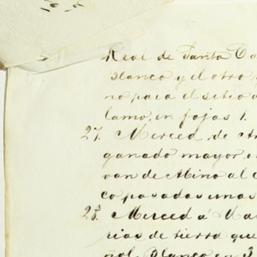 Real de Santa
blanco y el otro
no para el sitio d
lamo, en fojas 1.
27. Merced de
ganado mayor, e
van de Albino al C
co pasadas unas
28. Merced a Ma
rias de tierra que
nol. Blanco en